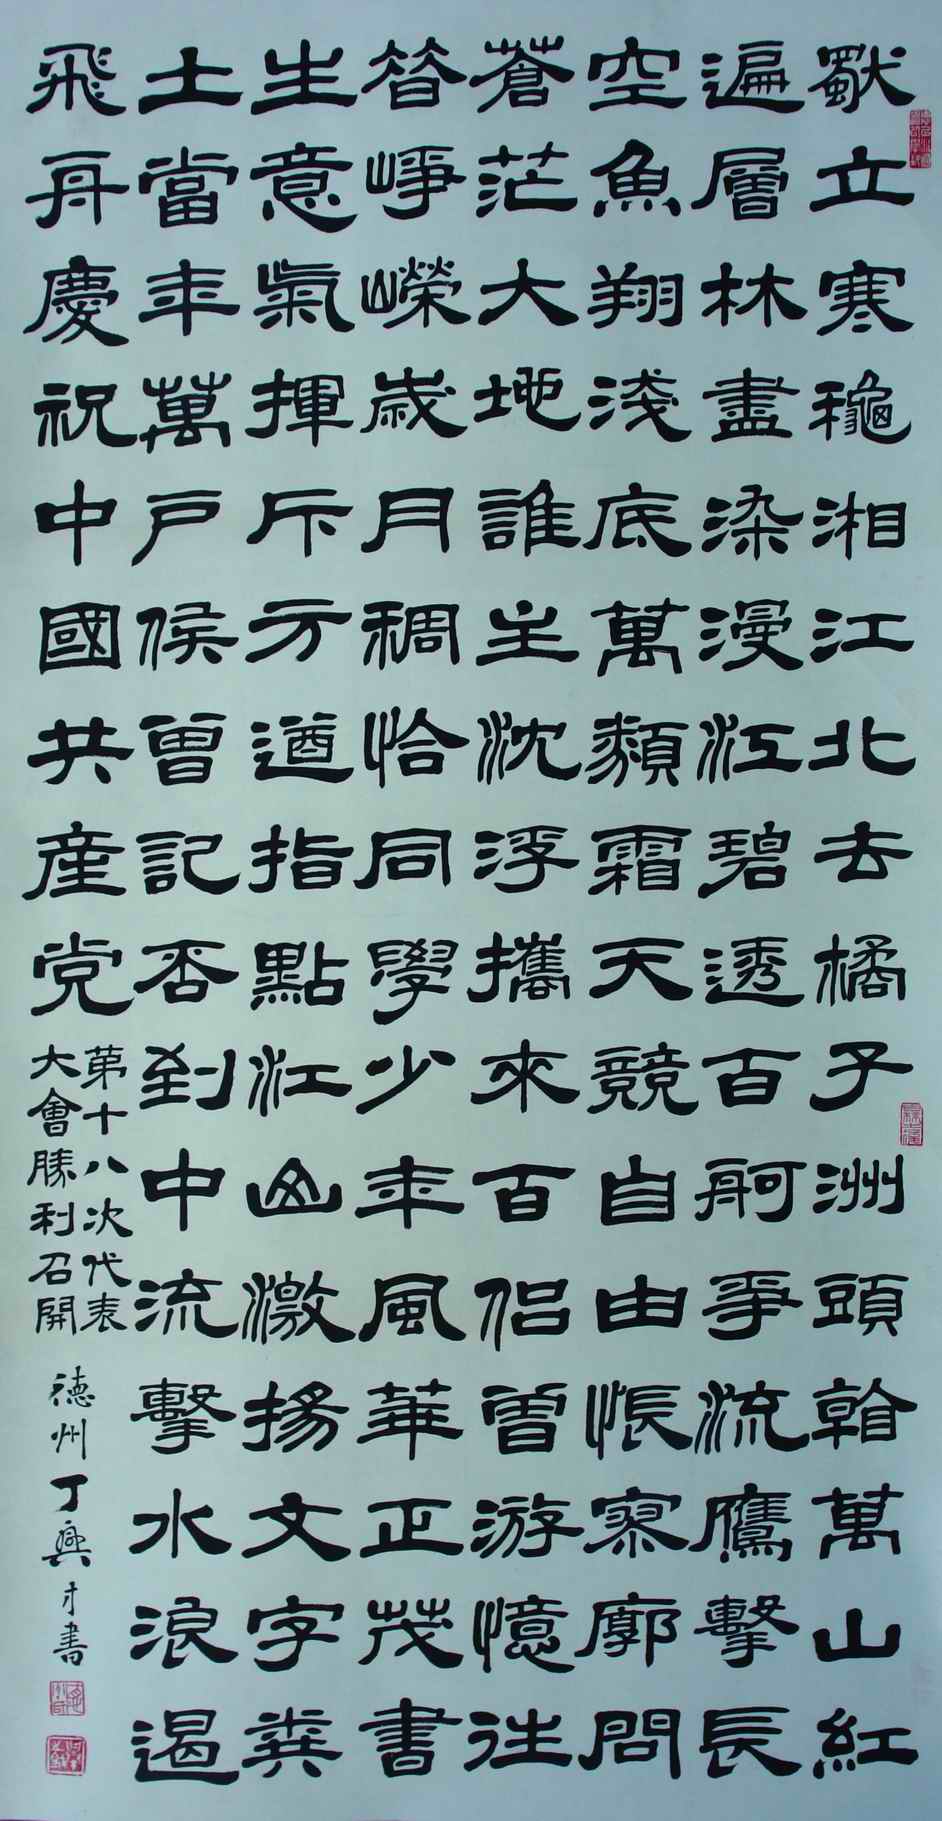 獨立寒穐湘江北去橘子洲頭看萬山紅
遍層林盡染漫江碧透百舸爭流鷹擊長
空魚翔淺底萬類霜天競自由悵寥廓問
蒼茫大地誰主沈浮攜來百侶曾游憶往
昔崢嶸歲月稠恰同學少年風華正茂書
生意氣揮斥方遒指點江山激揚文字糞
土當年萬戶侯曾記否到中流擊水浪遏
飛舟慶祝中國共産党
第十八次代表
大會勝利召開
德州丁興才書